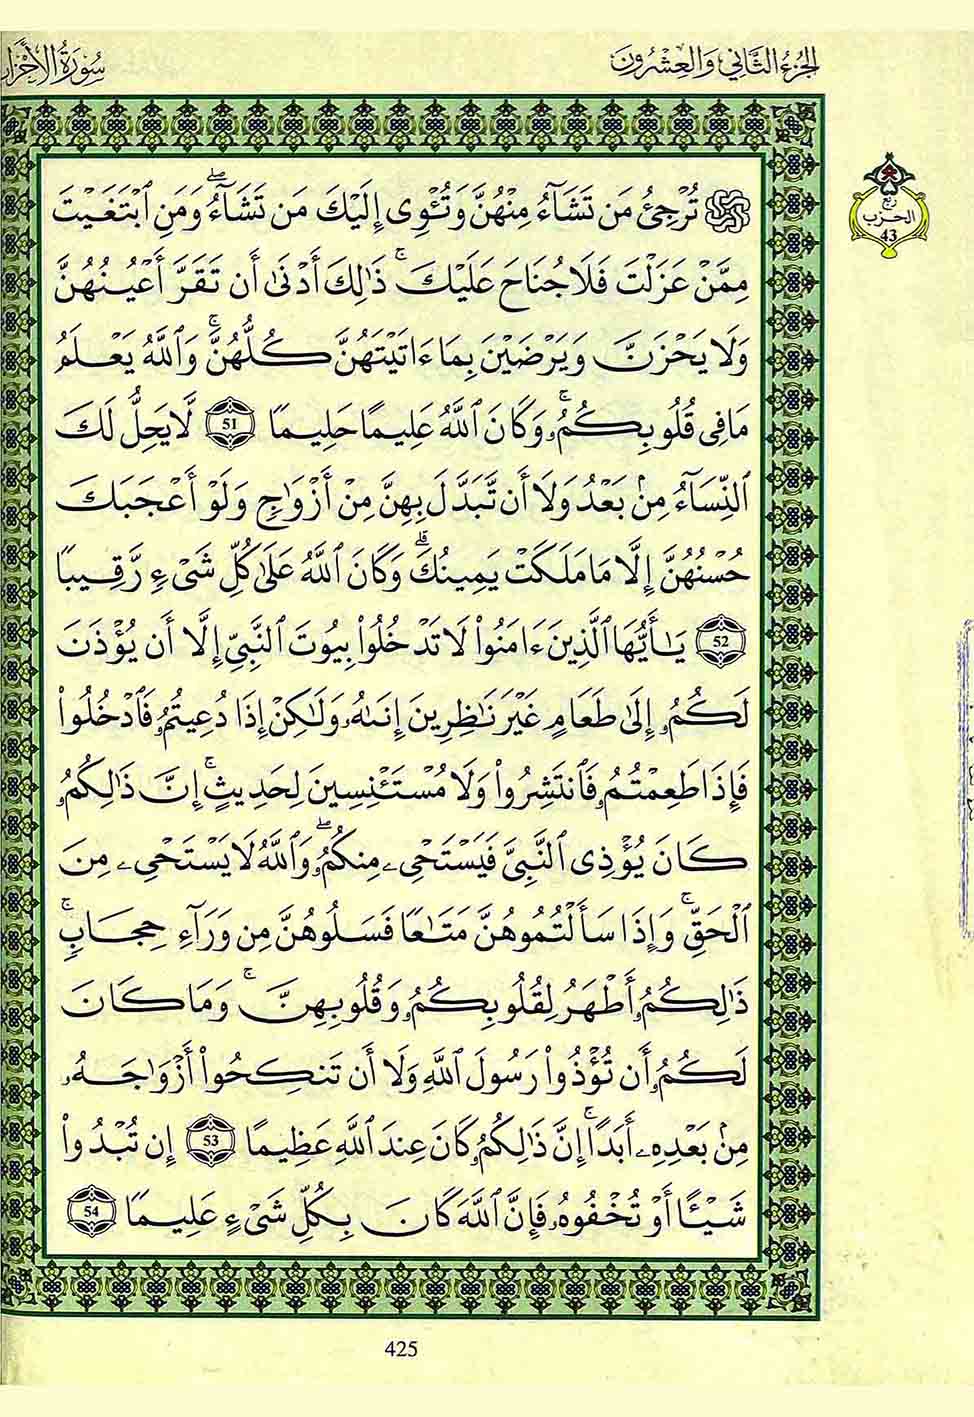 الجزء الثاني والعشرون
سورة الأحزاب
ربع
الحزب
43
۞ تُرْجِئُ مَن تَشَآءُ مِنْهُنَّ وَتُـْٔوِىٓ إِلَيْكَ مَن تَشَآءُۖ وَمَنِ ٱبْتَغَيْتَ
مِمَّنْ عَزَلْتَ فَلَا جُنَاحَ عَلَيْكَۚ ذَٰلِكَ أَدْنَىٰٓ أَن تَقَرَّ أَعْيُنُهُنَّ
وَلَا يَحْزَنَّ وَيَرْضَيْنَ بِمَآ ءَاتَيْتَهُنَّ كُلُّهُنَّۚ وَٱللَّهُ يَعْلَمُ
مَا فِى قُلُوبِكُمُۥۚ وَكَانَ ٱللَّهُ عَلِيمًا حَلِيمًا 51 لَّا يَحِلُّ لَكَ
ٱلنِّسَآءُ مِنۢ بَعْدُ وَلَآ أَن تَّبَدَّلَ بِهِنَّ مِنْ أَزْوَٰجٍ وَلَوْ أَعْجَبَكَ
حُسْنُهُنَّ إِلَّا مَا مَلَكَتْ يَمِينُكَۗ وَكَانَ ٱللَّهُ عَلَىٰ كُلِّ شَىْءٍ رَّقِيبًا
52 يَـٰٓأَيُّهَا ٱلَّذِينَ ءَامَنُوا۟ لَا تَدْخُلُوا۟ بِيُوتَ ٱلنَّبِىِّ إِلَّآ أَن يُؤْذَنَ
لَكُمُۥٓ إِلَىٰ طَعَامٍ غَيْرَ نَـٰظِرِينَ إِنَىٰهُ وَلَـٰكِنْ إِذَا دُعِيتُمُۥ فَٱدْخُلُوا۟
فَإِذَا طَعِمْتُمُۥ فَٱنتَشِرُوا۟ وَلَا مُسْتَـْٔنِسِينَ لِحَدِيثٍۚ إِنَّ ذَٰلِكُمُۥ
كَانَ يُؤْذِى ٱلنَّبِىَّ فَيَسْتَحْىِۦ مِنكُمُۥۖ وَٱللَّهُ لَا يَسْتَحْىِۦ مِنَ
ٱلْحَقِّۚ وَإِذَا سَأَلْتُمُوهُنَّ مَتَـٰعًا فَسَلُوهُنَّ مِن وَرَآءِ حِجَابٍۚ
ذَٰلِكُمُۥٓ أَطْهَرُ لِقُلُوبِكُمُۥ وَقُلُوبِهِنَّۚ وَمَا كَانَ
لَكُمُۥٓ أَن تُؤْذُوا۟ رَسُولَ ٱللَّهِ وَلَآ أَن تَنكِحُوٓا۟ أَزْوَٰجَهُۥ
مِنۢ بَعْدِهِۦٓ أَبَدًاۚ إِنَّ ذَٰلِكُمُۥ كَانَ عِندَ ٱللَّهِ عَظِيمًا 53 إِن تُبْدُوا۟
شَيْـًٔا أَوْ تُخْفُوهُۥ فَإِنَّ ٱللَّهَ كَانَ بِكُلِّ شَىْءٍ عَلِيمًا 54
425